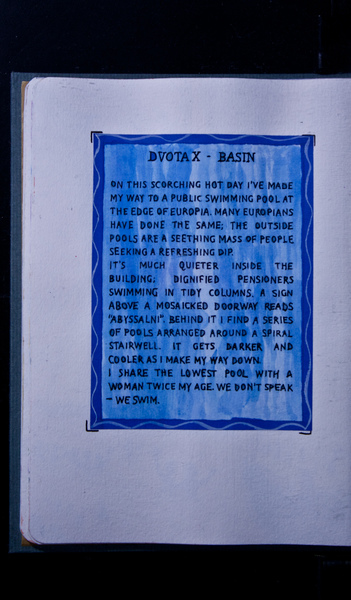 DVOTAX - BASIN
ON THIS SCORCHING HOT DAY I'VE MADE
MY WAY TO A PUBLIC SWIMMING POOL AT
THE EDGE OF EUROPIA. MANY EUROPIANS
HAVE DONE THE SAME; THE OUTSIDE
POOLS ARE A SEETHING MASS OF PEOPLE
SEEKING A REFRESHING DIP.
IT'S MUCH QUIETER INSIDE THE
BUILDING; DIGNIFIED PENSIONERS
SWIMMING IN TIDY COLUMNS. A SIGN
ABOVE A MOSAICKED DOORWAY READS
"ABYSSALNI". BEHIND IT I FIND A SERIES
OF POOLS ARRANGED AROUND A SPIRAL
STAIRWELL. IT GETS DARKER AND
COOLER AS I MAKE MY WAY DOWN.
I SHARE THE LOWEST POOL WITH A
WOMAN TWICE MY AGE. WE DON'T SPEAK
– WE SWIM.